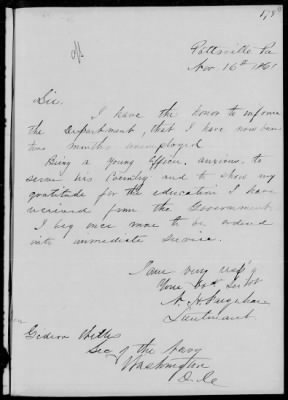 Pottsville Pa
Nov. 16th 1861
Sir.
I have the honor to inform
the Department, that I have now been
two months unemployed
Being a young Officer, anxious, to
serve his Country and to show my
gratitude for the education I have
received from the Government
I beg once more to be ordered
into immediate service.
I am very resp'y
Your obdt Servt
Lieutenant
Gideon Welles
Sec of the Navy
Washington
D. Ce